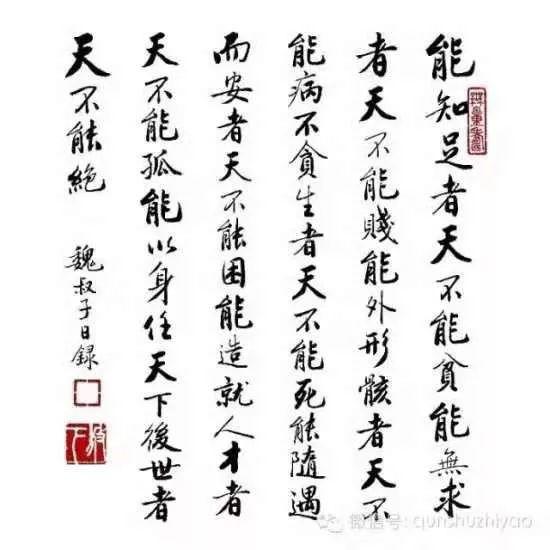 能知足者天不能貧能無求
者天不能賤能外形骸者天不
能病不貪生者天不能死能隨遇
而安者天不能困能造就人才者
天不能孤能以身任天下後世者
天不能絕
魏叔子日錄
微信号: qunshuzhiyao